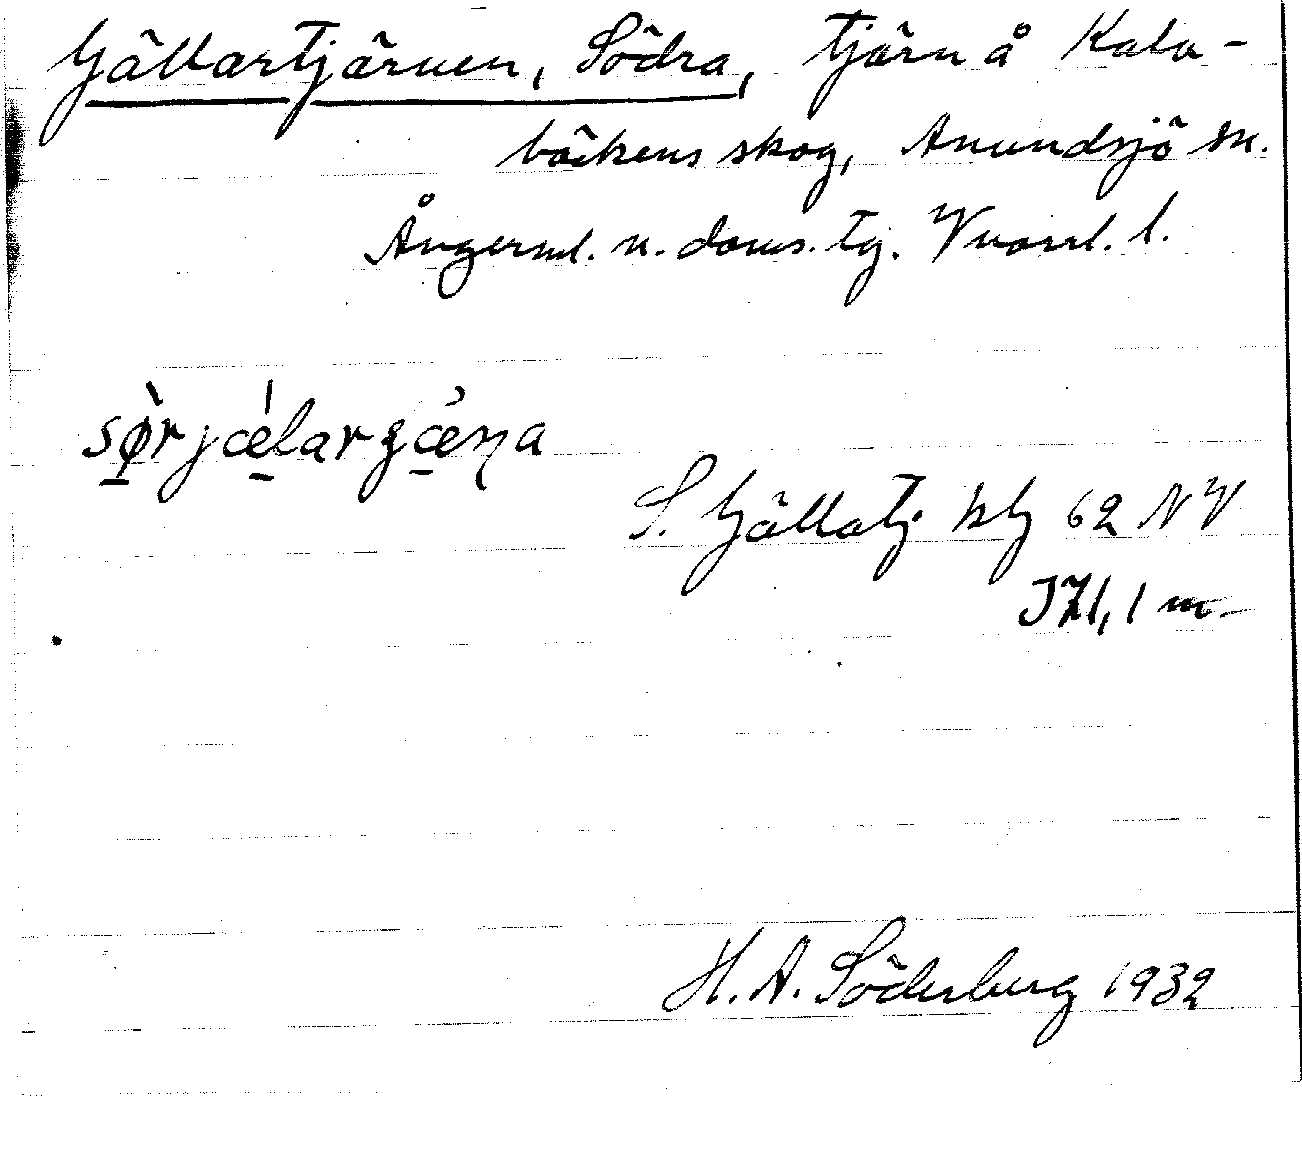 Gällartjärnen, Södra, tjärn å Kalv-
bäckens skog, Anundsjö sn.
Ångerml. n. doms. tg. Vnorrl. l.
sø̀rjǽlarʒæ̀ɳa
S. Gällatj. kbl 62 NV
371,1 m
H. A. Söderberg 1932